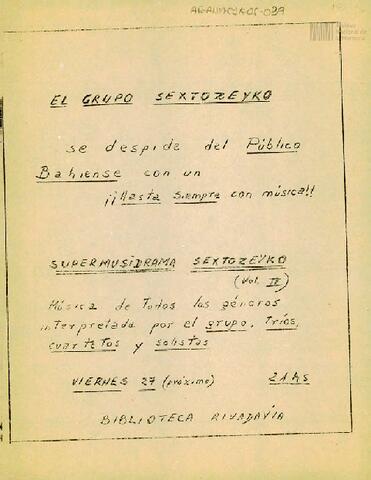 EL GRUPO SEXTOZEYKO
se despide del Público
Bahiense con un
¡¡Hasta siempre con música!!
SUPERMUSIDRAMA SEXTOZEYKO
(Vol. II)
Música de todos los géneros
interpretada por el grupo, tríos,
cuartetos y solistas
VIERNES 27 (próximo) 21 hs
BIBLIOTECA RIVADAVIA